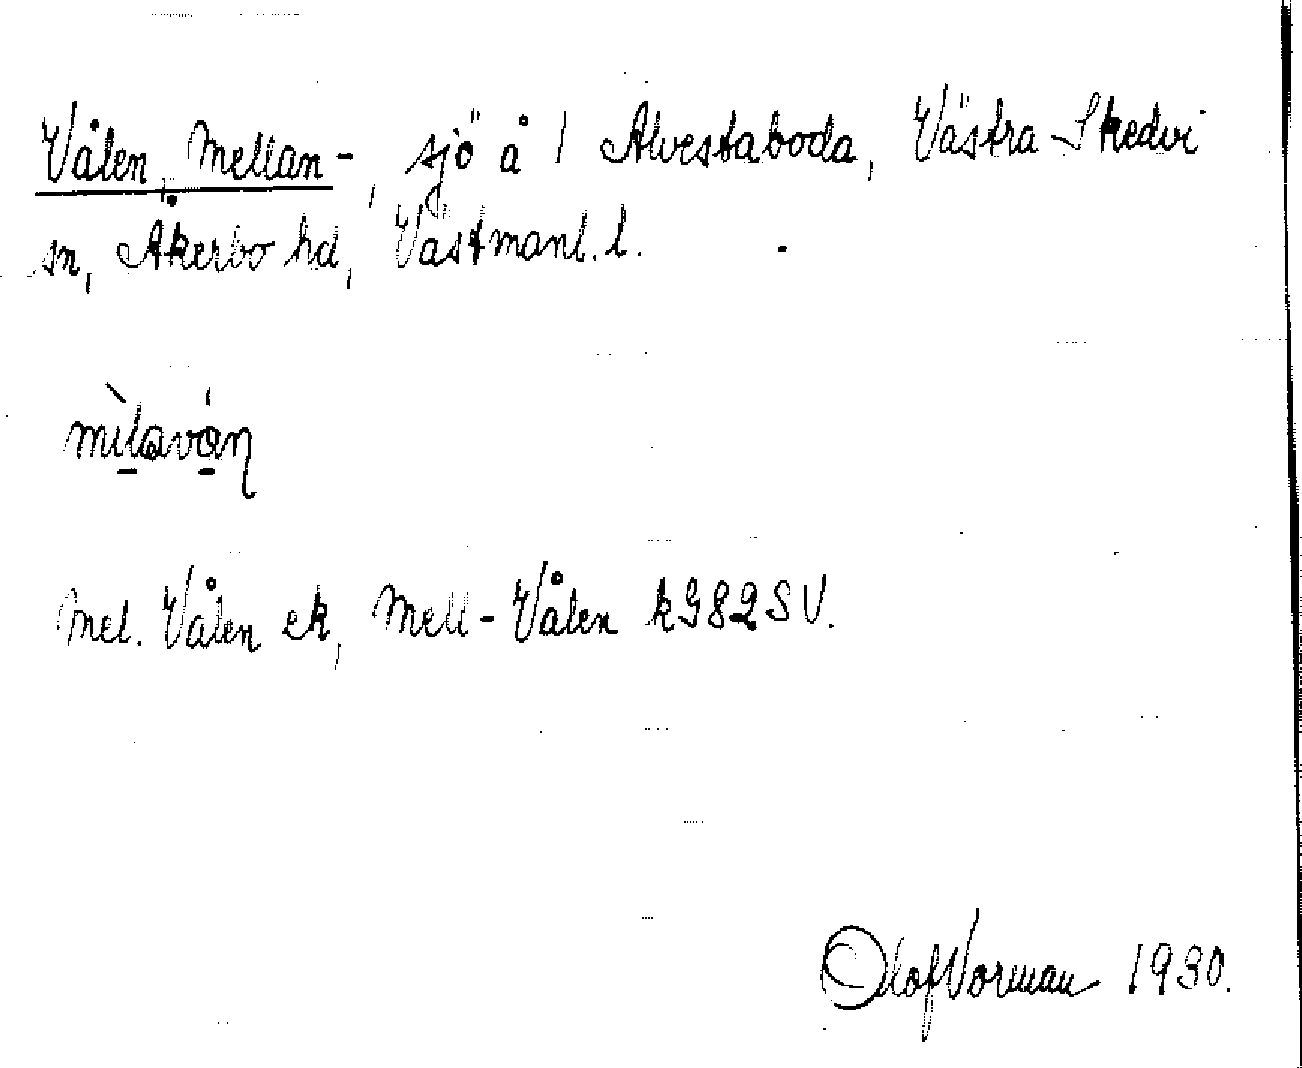 Vålen, Mellan-, sjö å 1 Alvestaboda, Västra Skedvi
sn, Åkerbo hd, Västmanl. l.
Mel. Vålen ek, Mell-Vålen kG82SV.
Olof Vorman 1930.